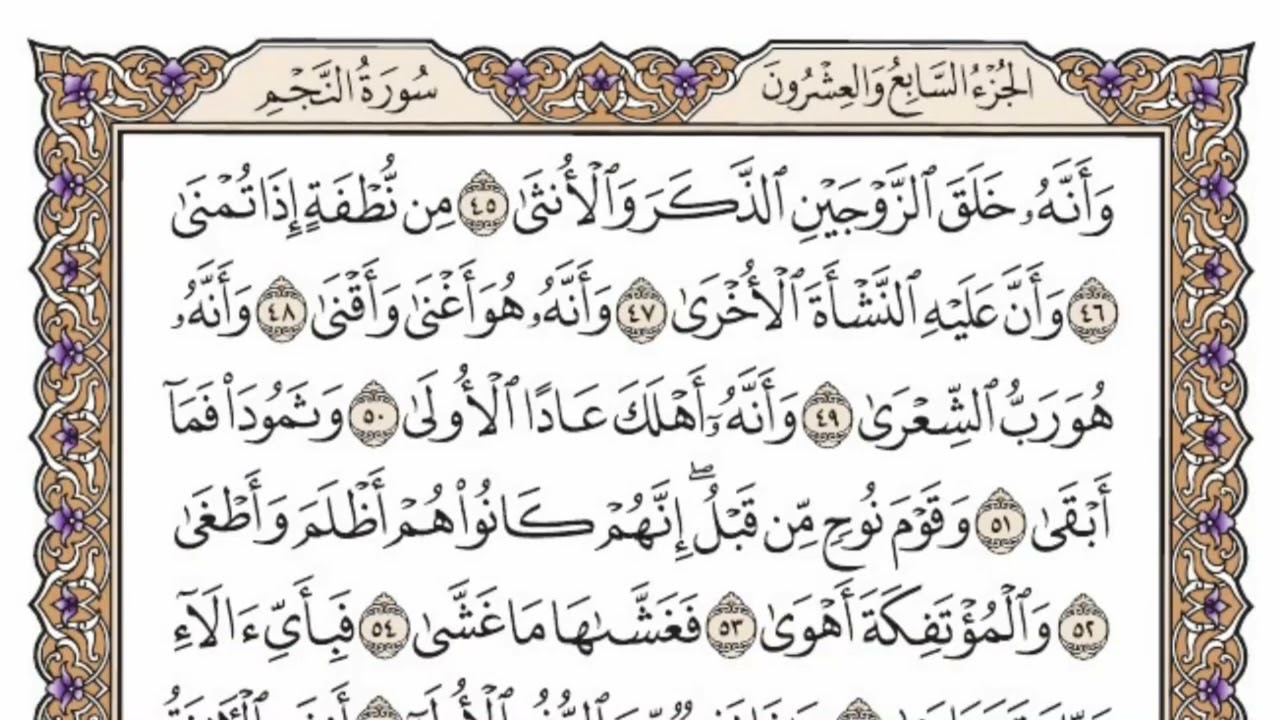 الجُزْءُ السَّابِعُ وَالعِشْرُونَ
سُورَةُ النَّجْمِ
وَأَنَّهُۥ خَلَقَ ٱلزَّوْجَيْنِ ٱلذَّكَرَ وَٱلْأُنثَىٰ ٤٥ مِن نُّطْفَةٍ إِذَا تُمْنَىٰ
٤٦ وَأَنَّ عَلَيْهِ ٱلنَّشْأَةَ ٱلْأُخْرَىٰ ٤٧ وَأَنَّهُۥ هُوَ أَغْنَىٰ وَأَقْنَىٰ ٤٨ وَأَنَّهُۥ
هُوَ رَبُّ ٱلشِّعْرَىٰ ٤٩ وَأَنَّهُۥٓ أَهْلَكَ عَادًا ٱلْأُولَىٰ ٥٠ وَثَمُودَا۟ فَمَآ
أَبْقَىٰ ٥١ وَقَوْمَ نُوحٍ مِّن قَبْلُ ۖ إِنَّهُمْ كَانُوا۟ هُمْ أَظْلَمَ وَأَطْغَىٰ
٥٢ وَٱلْمُؤْتَفِكَةَ أَهْوَىٰ ٥٣ فَغَشَّىٰهَا مَا غَشَّىٰ ٥٤ فَبِأَىِّ ءَالَآءِ